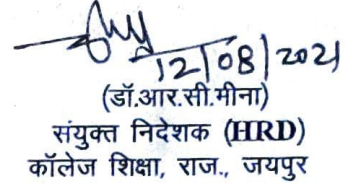 12/08/2021
(डॉ.आर.सी.मीना)
संयुक्त निदेशक (HRD)
कॉलेज शिक्षा, राज., जयपुर